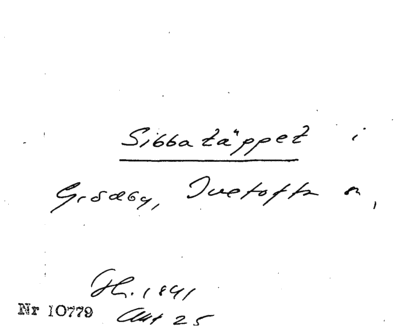 Sibbatäppet i
Grödby, Ivetofta sn,
Sh. 1841
Nr 10779 Akt 25